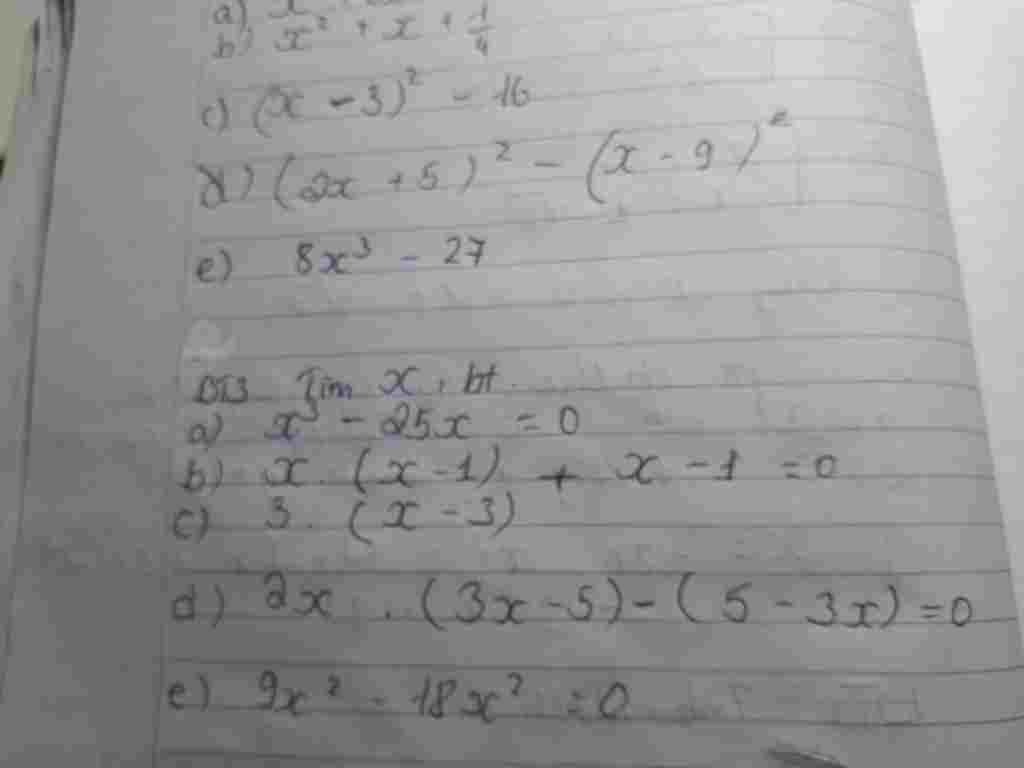 a) x
b) x² + x + 1/4
c) (x - 3)² - 16
d) (2x + 5)² - (x - 9)²
e) 8x³ - 27
BT3 Tìm x, bt
a) x³ - 25x = 0
b) x. (x - 1) + x - 1 = 0
c) 3. (x - 3)
d) 2x . (3x - 5) - (5 - 3x) = 0
e) 9x² - 18x² = 0